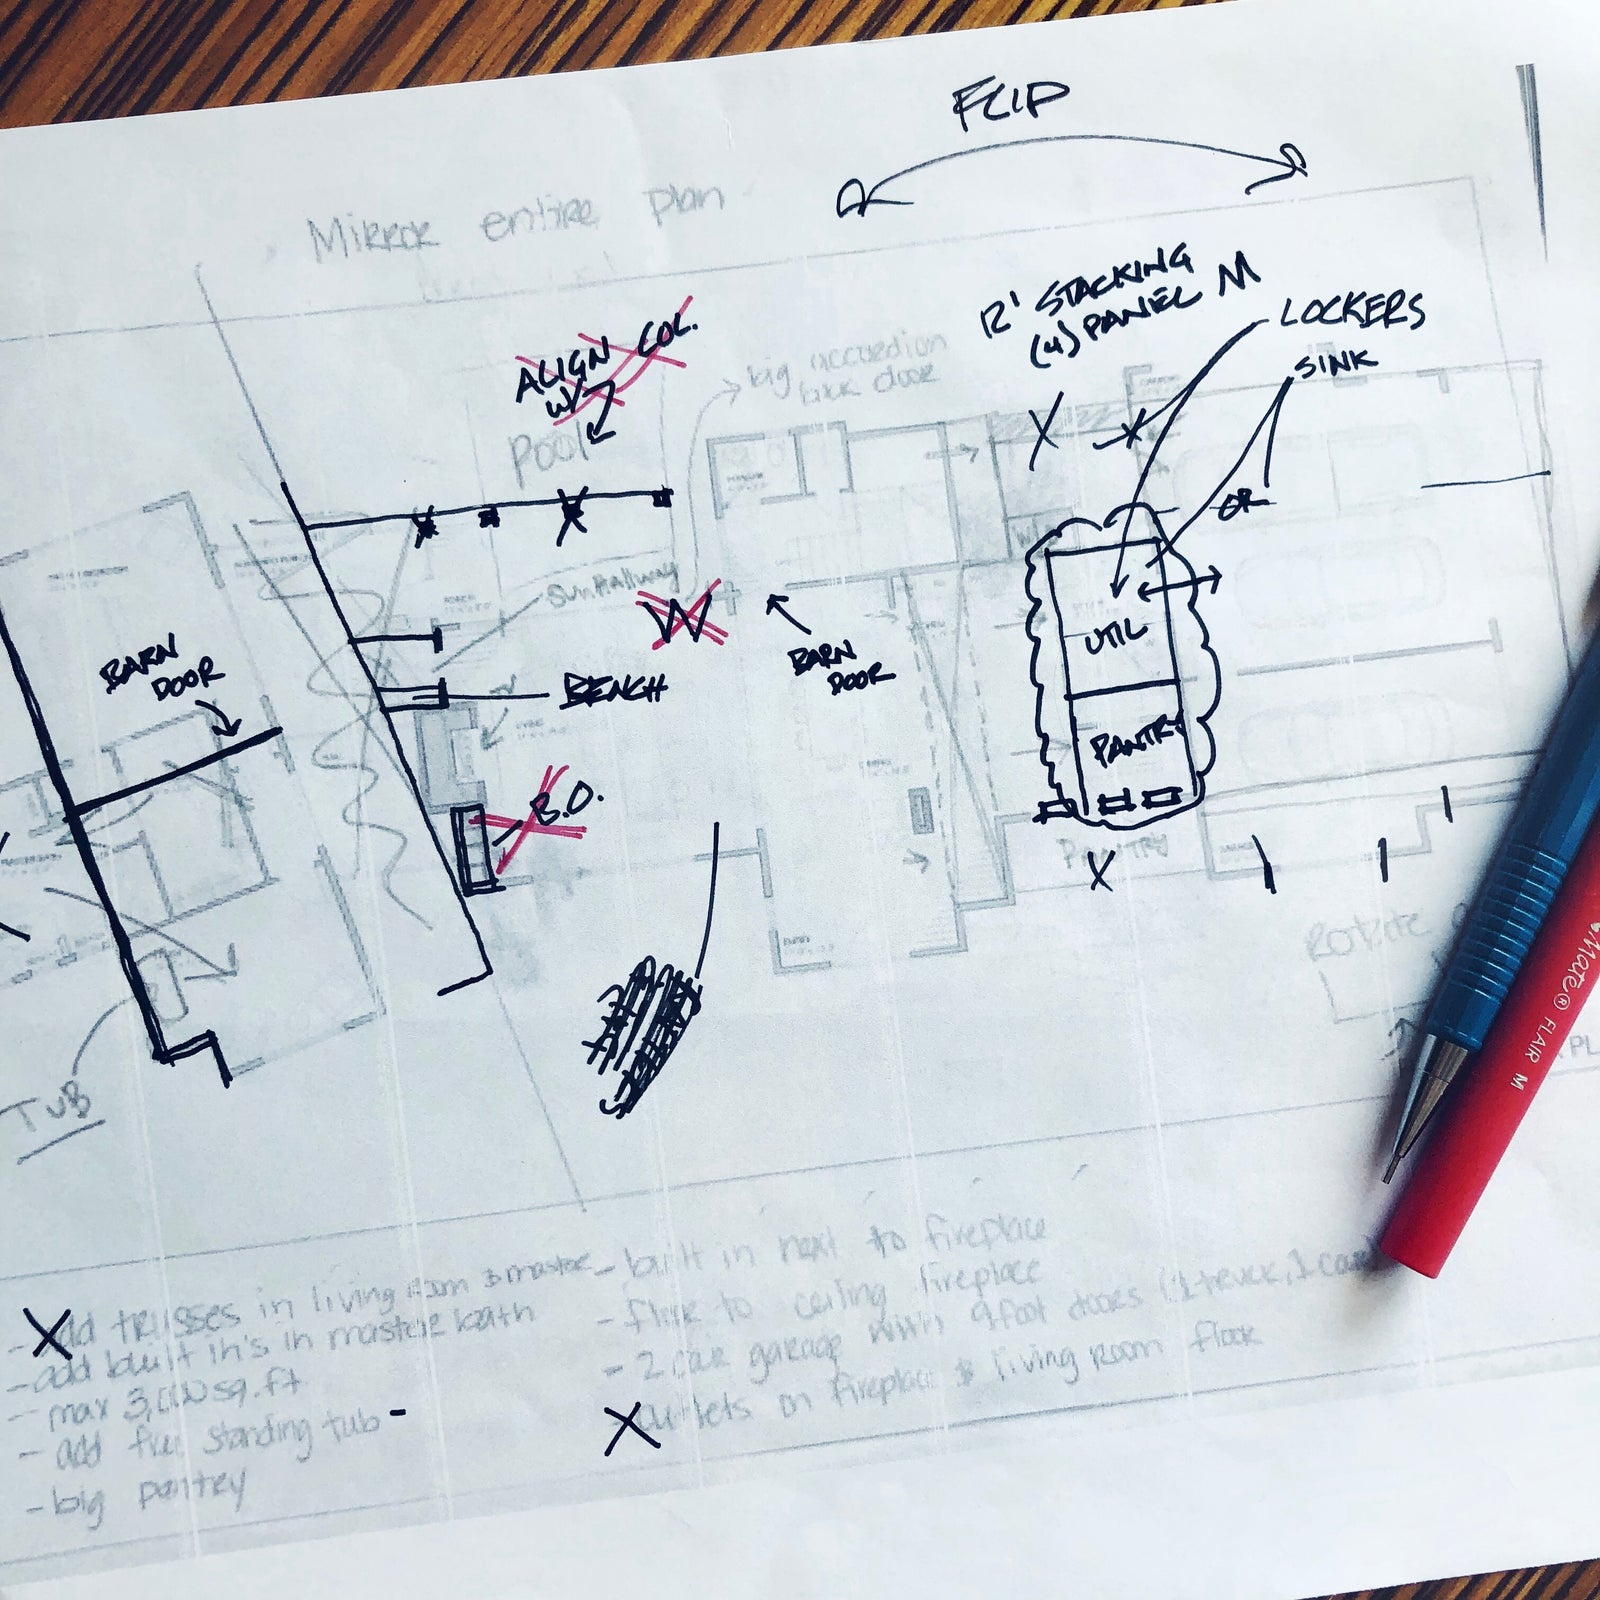 FLIP
Mirror entire plan
12' STACKING
(4) PANEL
LOCKERS
SINK
OR
ALIGN COL.
W/
Pool
big accordion
back door
Sun Hallway
W
BARN
DOOR
BENCH
BARN
DOOR
UTIL
PANTRY
PANTRY
B.O.
TUB
Rotate
Mate® FLAIR M
- add trusses in living room & master
- add built in's in master bath
- max 3,000 sq.ft
- add free standing tub -
- big pantry
- built in next to fireplace
- floor to ceiling fireplace
- 2 car garage with 9 foot doors (1 truck, 1 car)
outlets on fireplace & living room floor